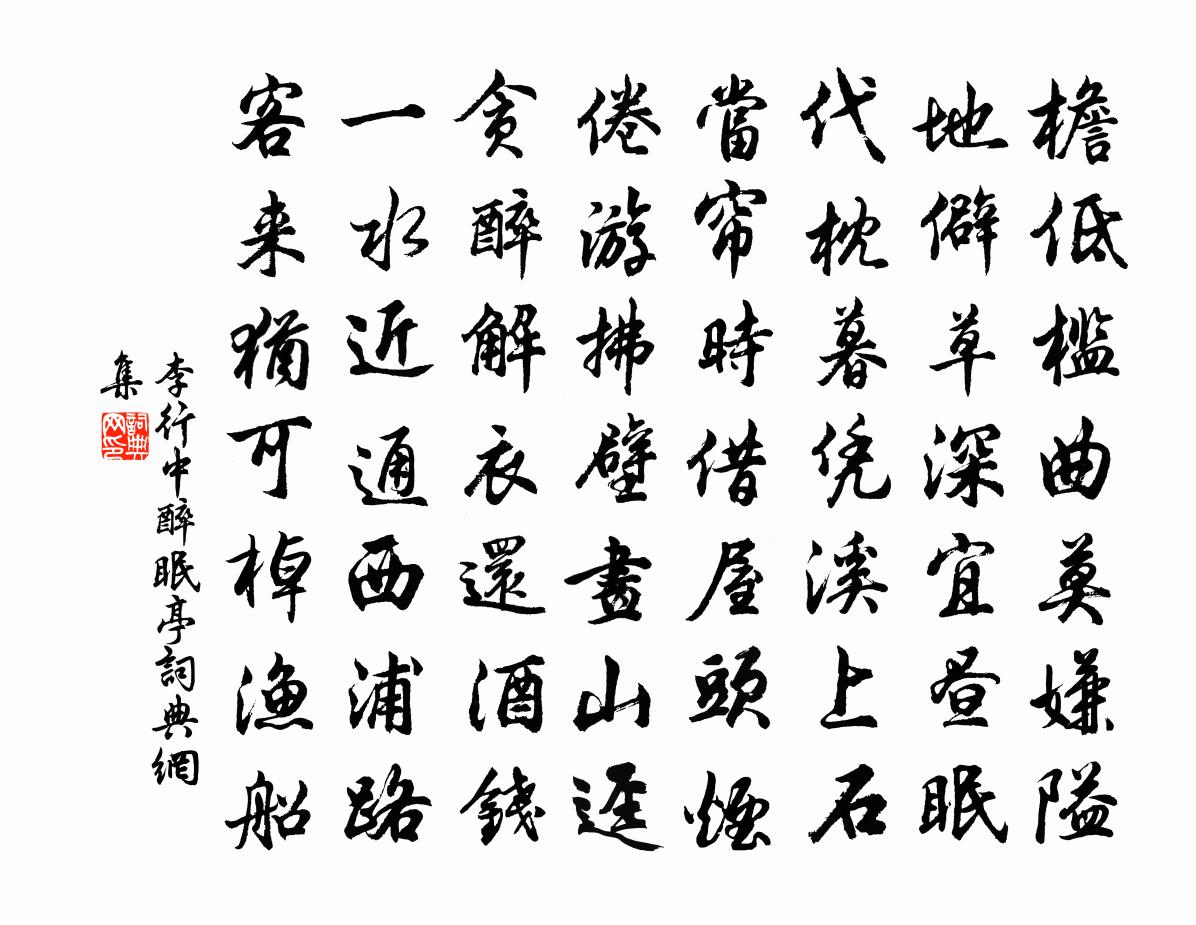 檐低槛曲莫嫌隘
地僻草深宜昼眠
代枕暮凭溪上石
當帘時借屋頭煙
倦游拂壁畫山逕
貪醉解衣還酒錢
一水近通西浦路
客来猶可棹漁船
李行中醉眠亭詞典網
集
詞典网印